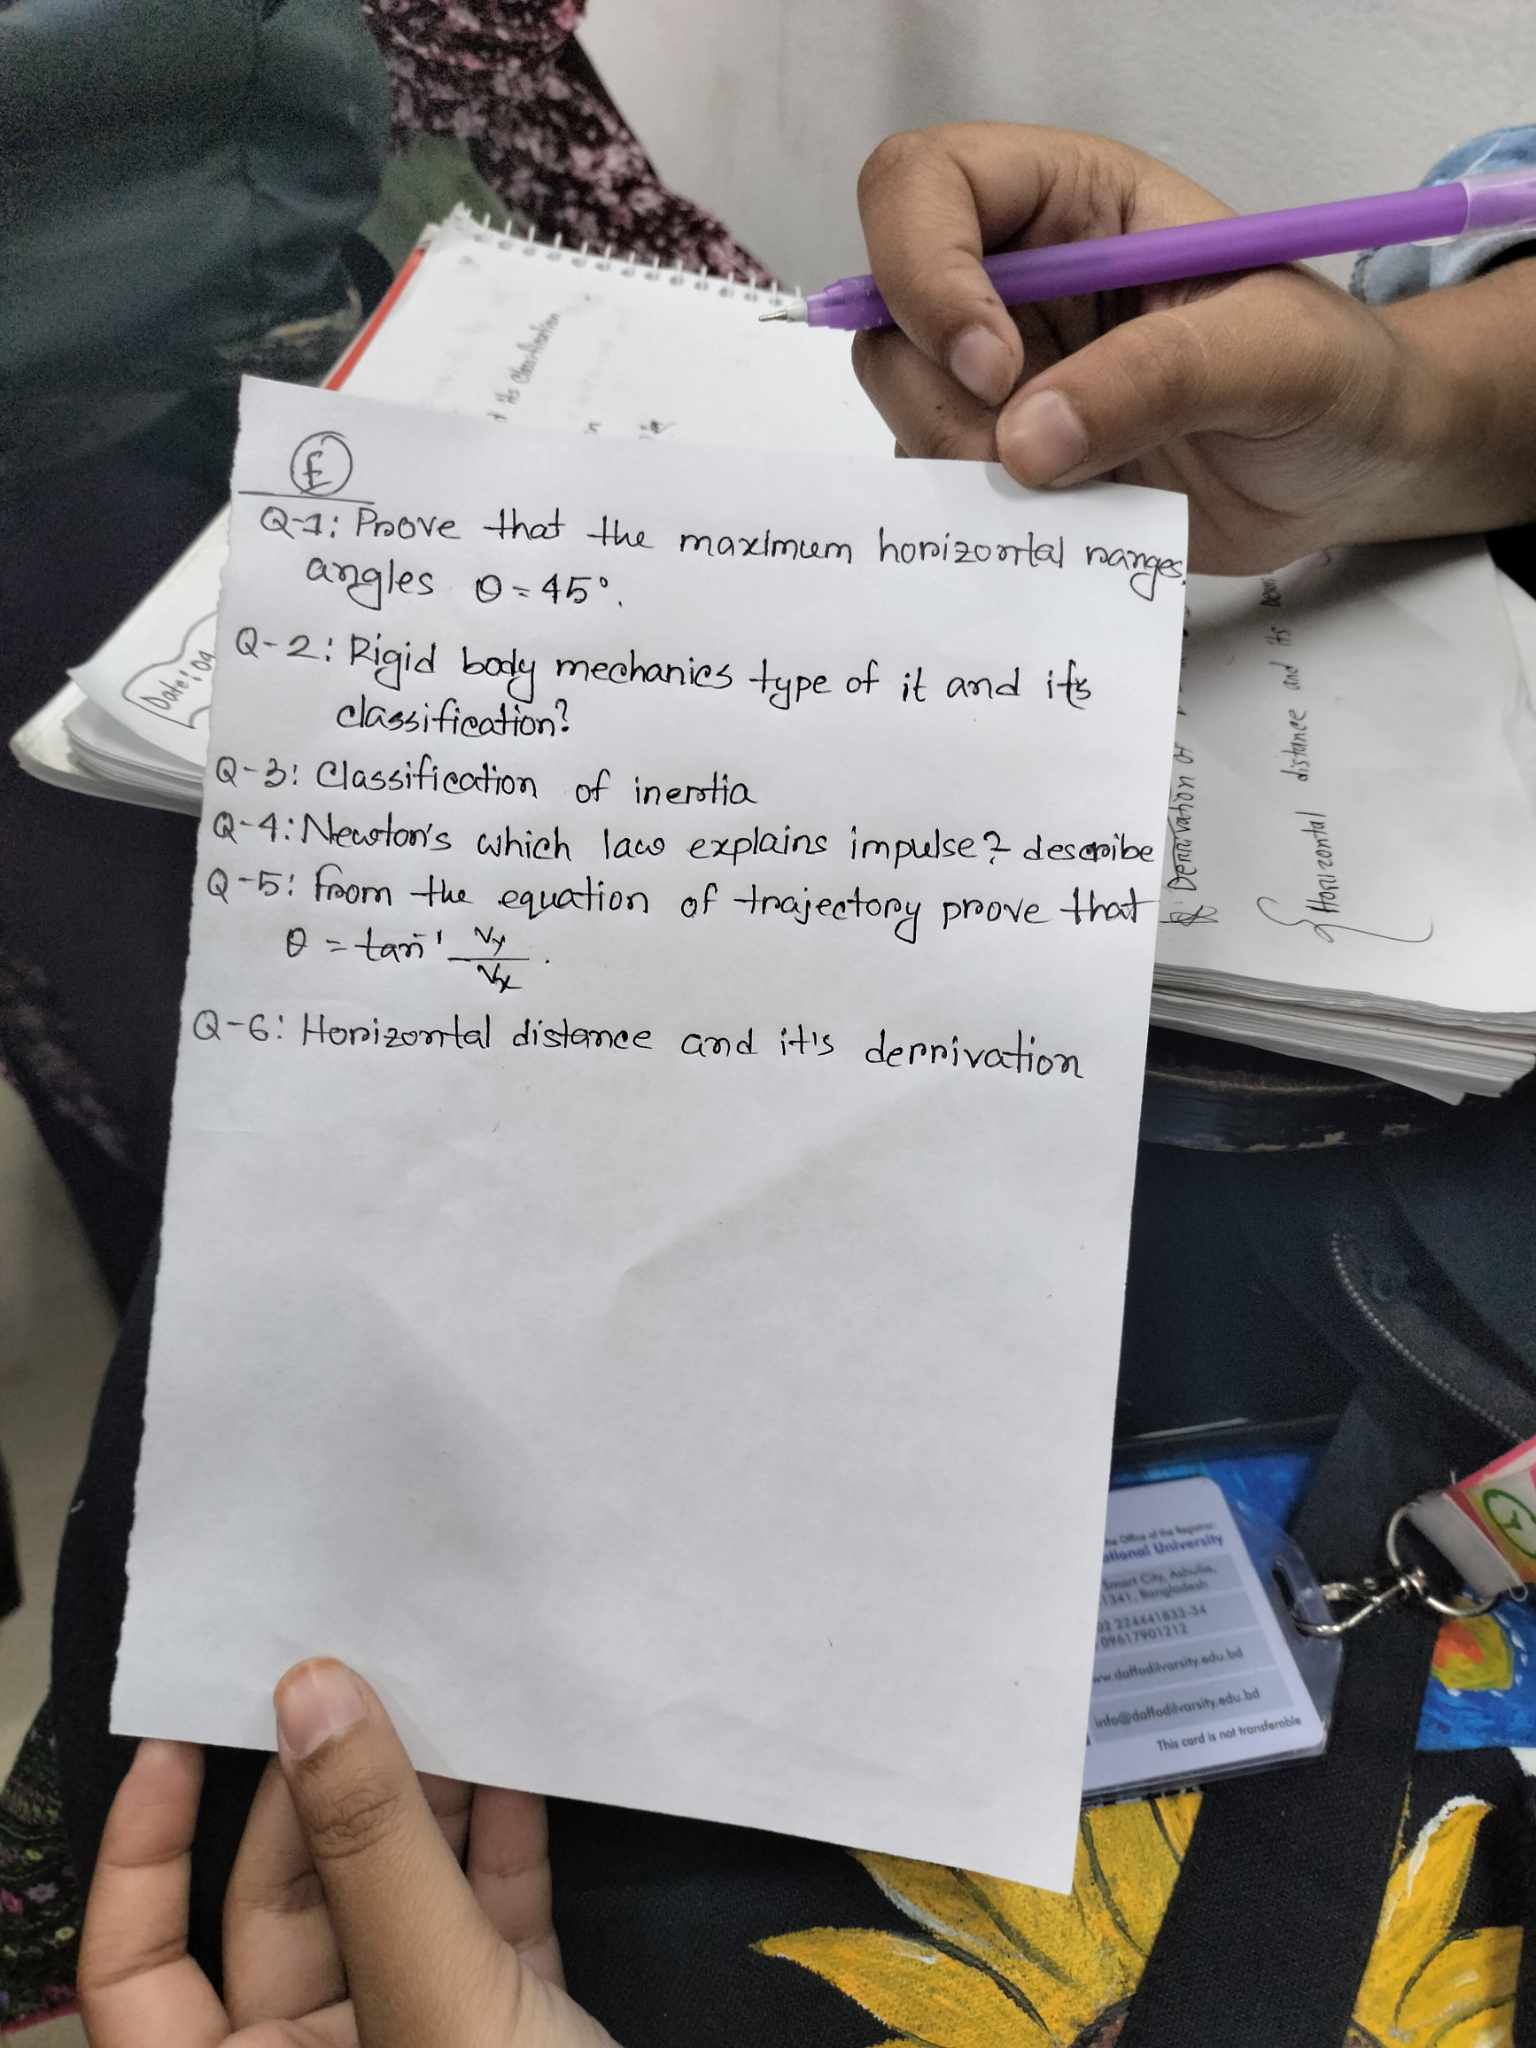 it's classification
£
Q-1: Prove that the maximum horizontal ranges.
angles θ = 45°.
Q-2: Rigid body mechanics type of it and it's
classification?
Q-3: Classification of inertia
Q-4: Newton's which law explains impulse? describe
Q-5: From the equation of trajectory prove that
θ = tan⁻¹ Vy/Vx.
Q-6: Horizontal distance and it's derrivation
Date: 09
Derrivation of
Horizontal distance and its
the Office of the Registrar
ational University
Smart City, Ashulia,
1341, Bangladesh
02 224441833-34
09617901212
www.daffodilvarsity.edu.bd
info@daffodilvarsity.edu.bd
This card is not transferable